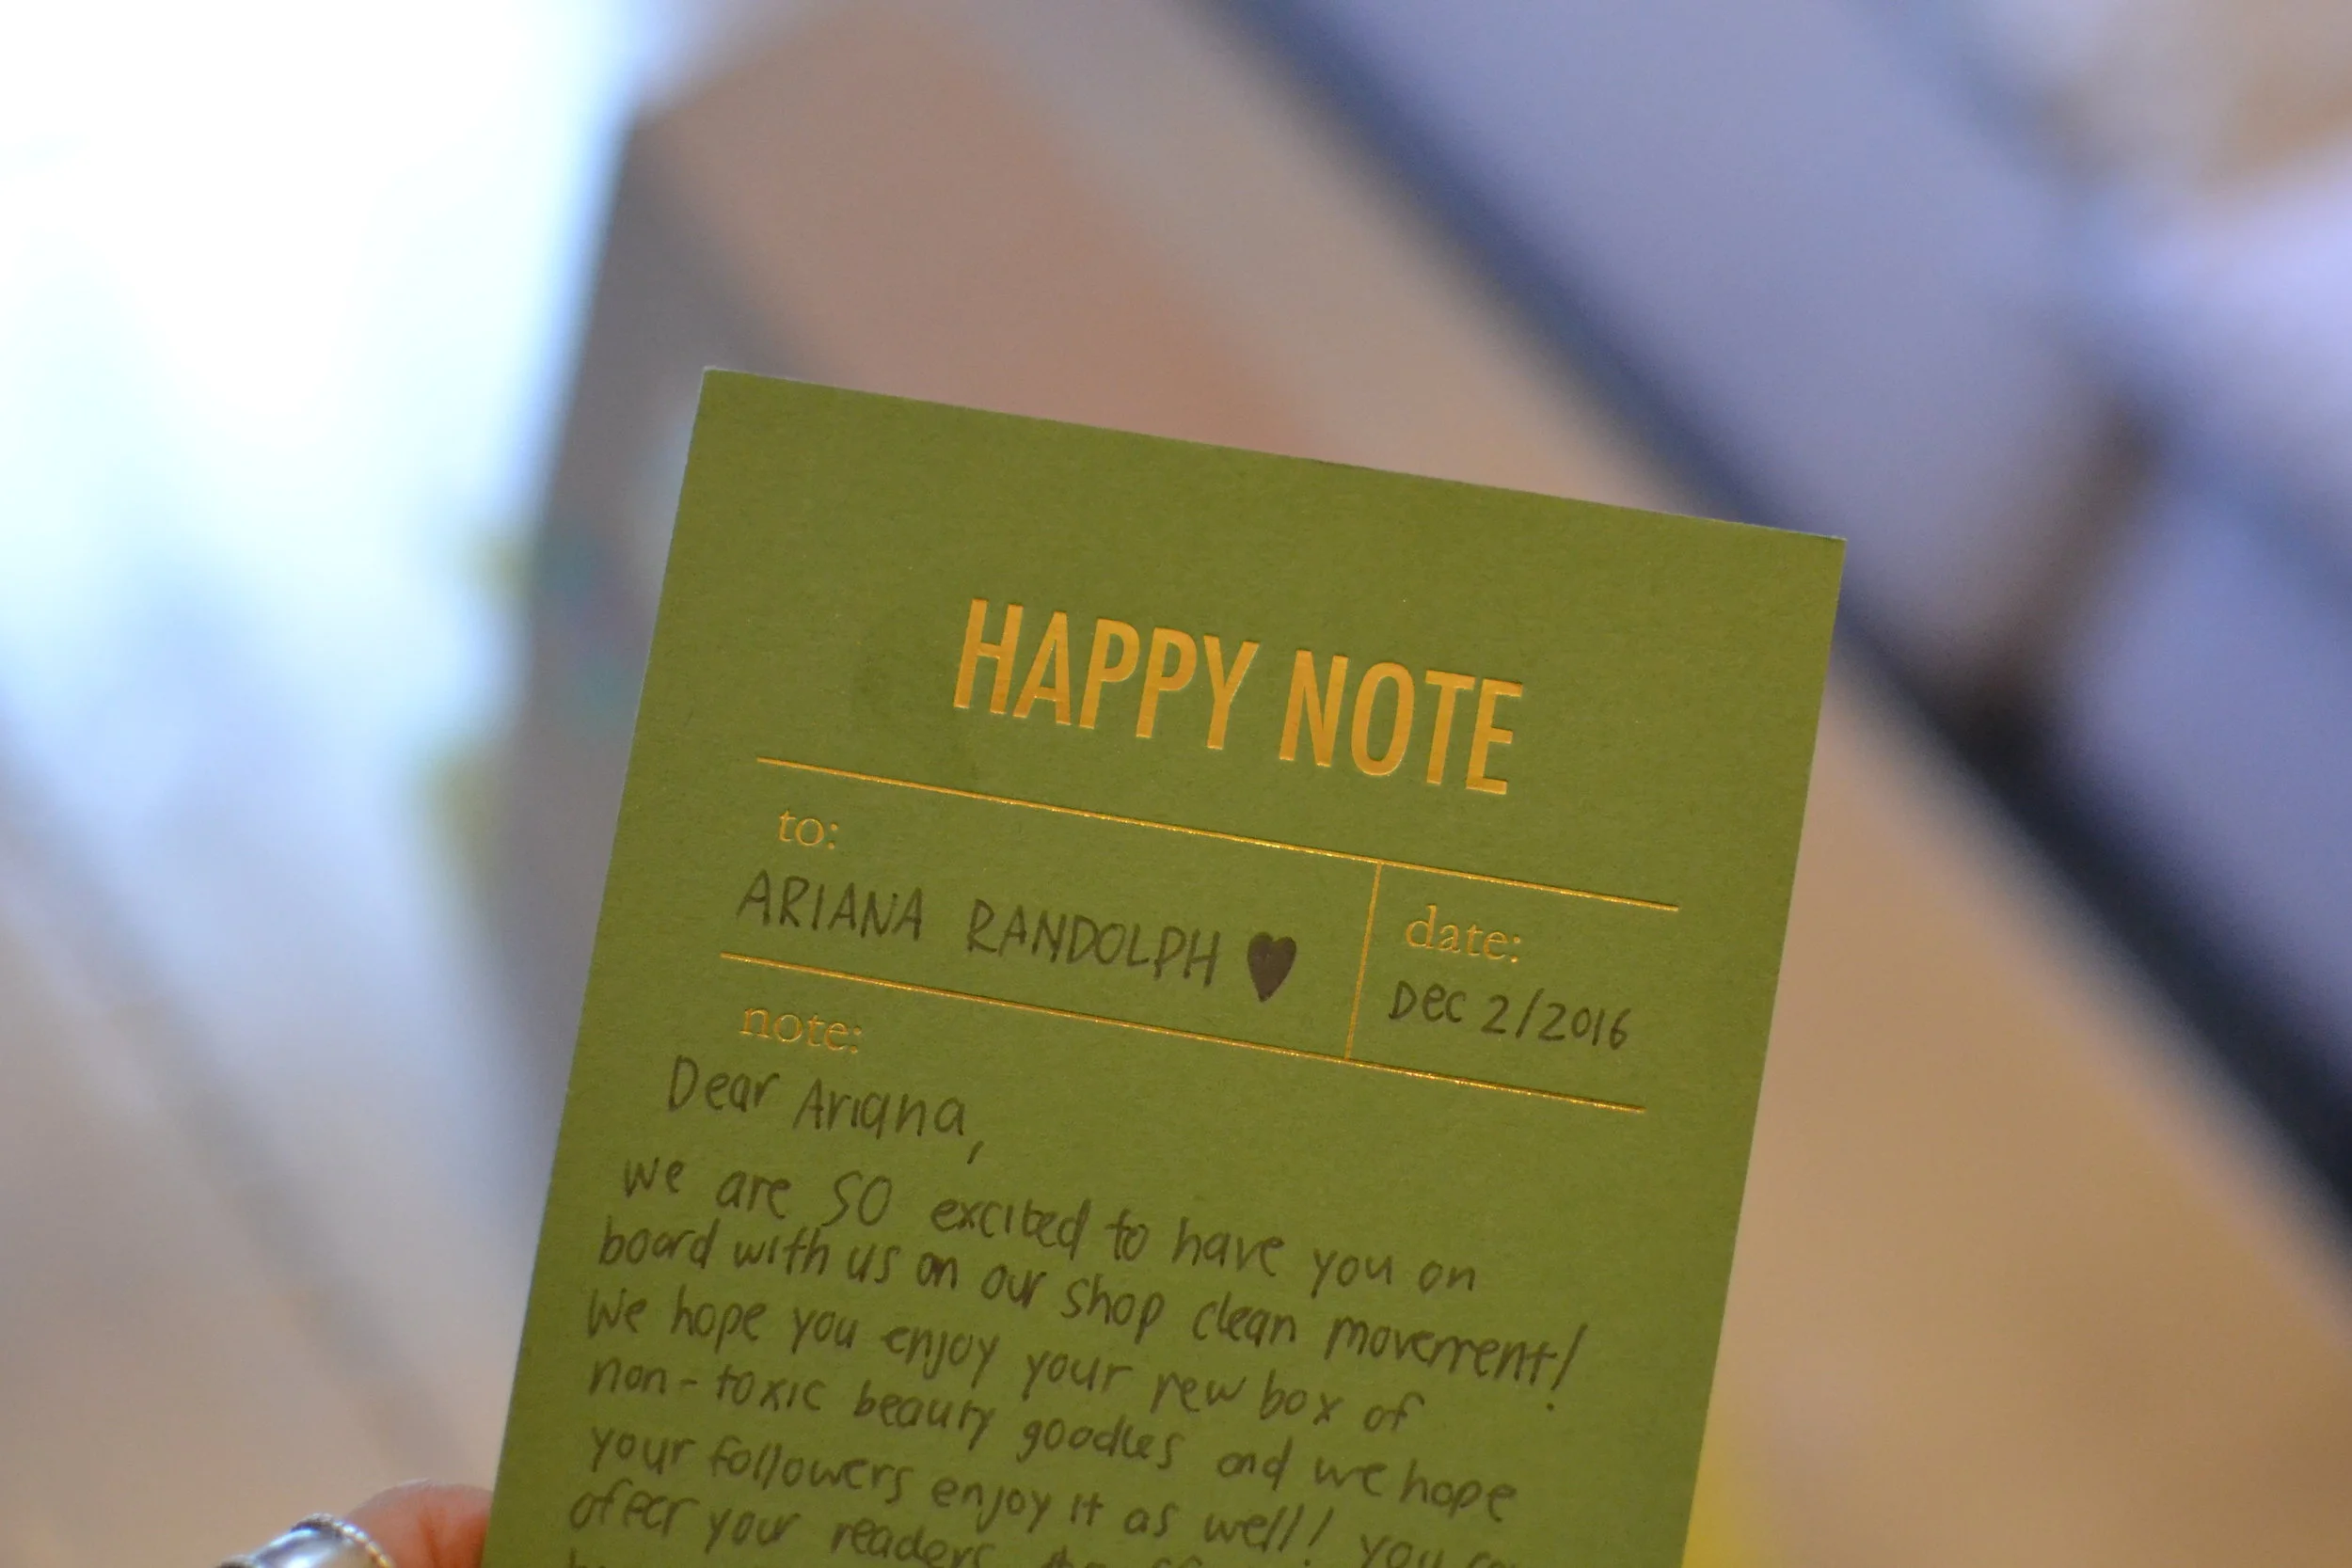 HAPPY NOTE
to:
ARIANA RANDOLPH ♥
date:
Dec 2/2016
note:
Dear Ariana,
we are SO excited to have you on
board with us on our shop clean movement!
We hope you enjoy your new box of
non-toxic beauty goodies and we hope
your followers enjoy it as well! you
offer your readers